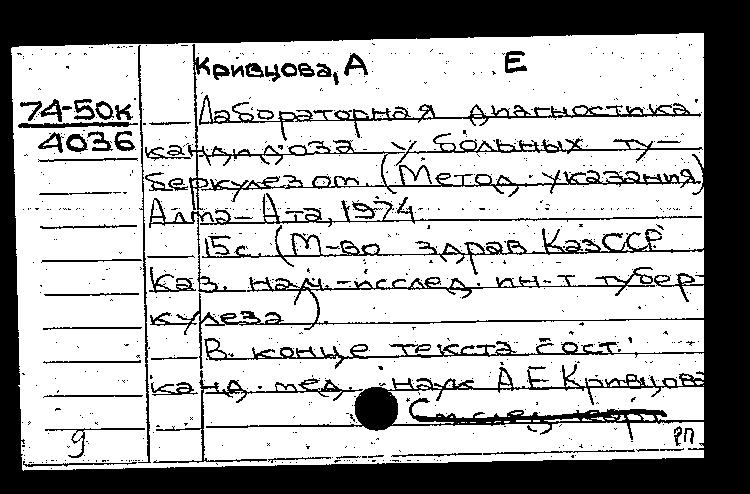 Кривцова, А Е
74-50к
4036
Лабораторная диагностика
кандидоза у больных ту-
беркулезом. (Метод. указания)
Алма-Ата, 1974
15с. (М-во здрав КазССР
Каз. науч.-исслед. ин-т тубер-
кулеза).
В конце текста сост.:
канд. мед. наук А.Е Кривцова
9
РП